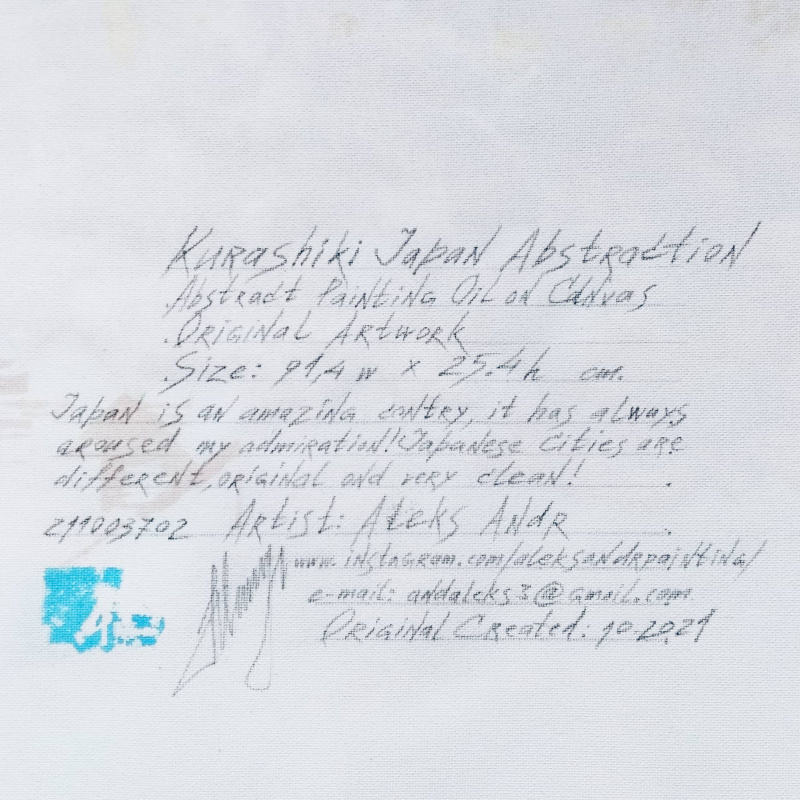 Kurashiki Japan Abstraction
.Abstract Painting Oil on Canvas
.Original Artwork
.Size: 91,4 w x 25.4 h cm.
Japan is an amazing contry, it has always
aroused my admiration! Japanese cities are
different, original and very clean! .
211003702 Artist: Aleks Andr .
www.instagram.com/aleksandrpainting/
e-mail: andaleks3@gmail.com
Original Created: 10-2021